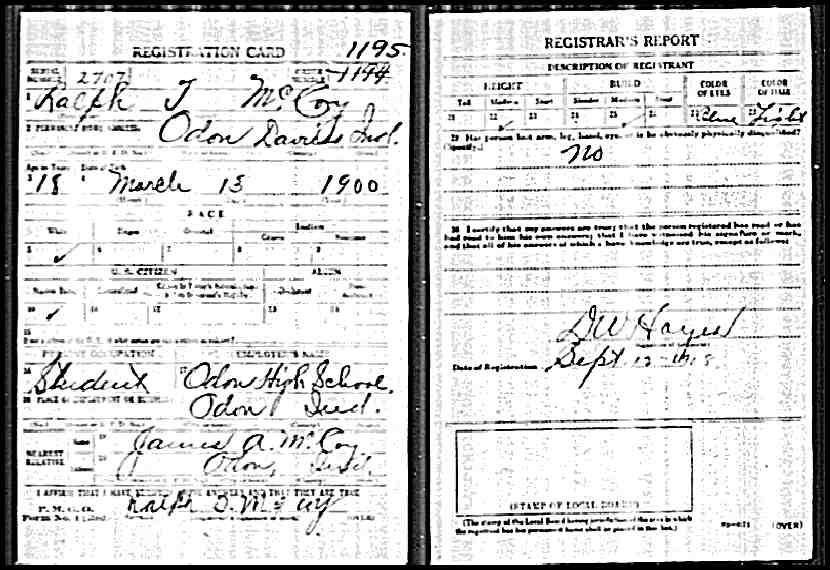 REGISTRATION CARD 1195
SERIAL NUMBER 2707 ORDER NUMBER 1194
1 Ralph T McCoy
2 PERMANENT HOME ADDRESS
Odon Daviess Ind.
Age in Years Date of Birth
3 18 4 March 13 1900
RACE
White Negro Oriental Indian
Citizen Noncitizen
5 ✓ 6 7 8 9
U. S. CITIZEN ALIEN
Native Born Naturalized Declarant
10 ✓ 11 12 13 14
15
PRESENT OCCUPATION EMPLOYER'S NAME
16 Student 17 Odon High School
18 PLACE OF EMPLOYMENT OR BUSINESS
Odon Ind.
NEAREST RELATIVE Name 19 James A. McCoy
Address 20 Odon, Ind.
I AFFIRM THAT I HAVE VERIFIED ABOVE ANSWERS AND THAT THEY ARE TRUE
P. M. G. O.
Form No. 1 Ralph McCoy
REGISTRAR'S REPORT
DESCRIPTION OF REGISTRANT
HEIGHT BUILD COLOR OF EYES COLOR OF HAIR
Tall Medium Short Slender Medium Stout
21 22 ✓ 23 24 25 ✓ 26 27 Blue 28 Light
29 Has person lost arm, leg, hand, eye, or is he obviously physically disqualified?
(Specify.)
No
30 I certify that my answers are true; that the person registered has read or has
had read to him his own answers; that I have witnessed his signature or mark,
and that all of his answers of which I have knowledge are true, except as follows:
D W Hayes
Date of Registration Sept 12-1918
(STAMP OF LOCAL BOARD)
(The stamp of the Local Board having jurisdiction of the area in which
the registrant has his permanent home shall be placed in this box.)
(OVER)